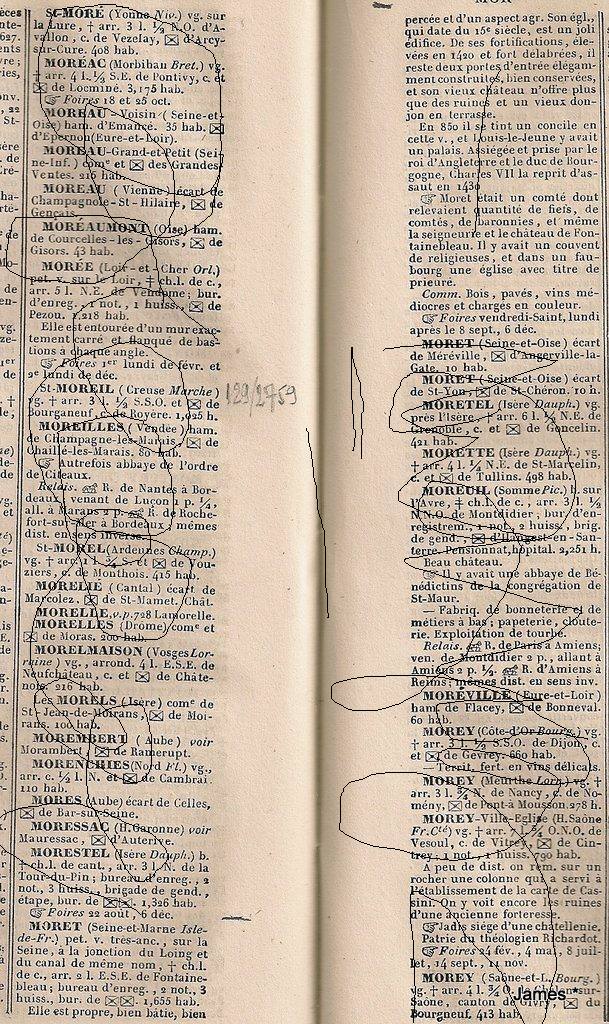 MOR
St-MORÉ (Yonne Niv.) vg. sur
la Cure, † arr. 3 l. ½ N.O. d'A-
vallon, c. de Vezelay, ⊠ d'Arcy-
sur-Cure. 408 hab.
MORÉAC (Morbihan Bret.) vg.
† arr. 4 l. ½ S.E. de Pontivy, c. et
⊠ de Locminé. 3,175 hab.
☞ Foires 18 et 25 oct.
MOREAU-Voisin (Seine-et-
Oise) ham. d'Emancé. 35 hab. ⊠
d'Epernon (Eure-et-Loir).
MOREAU-Grand-et-Petit (Sei-
ne-Inf.) comᵉ et ⊠ des Grandes
Ventes. 216 hab.
MOREAU (Vienne) écart de
Champagnole-St-Hilaire, ⊠ de
Gençais.
MORÉAUMONT (Oise) ham.
de Courcelles-les-Gisors, ⊠ de
Gisors. 43 hab.
MORÉE (Loir-et-Cher Orl.)
pet. v. sur le Loir, † ch.l. de c.,
arr. 5 l. N.E. de Vendôme; bur.
d'enreg., 1 not., 1 huiss., ⊠ de
Pezou. 1,218 hab.
Elle est entourée d'un mur exac-
tement carré et flanqué de bas-
tions à chaque angle.
☞ Foires 1er lundi de févr. et
2e lundi de déc.
St-MOREIL (Creuse Marche)
vg. † arr. 3 l. S.S.O. et ⊠ de
Bourganeuf, c. de Royère. 1,025 h.
MOREILLES (Vendée) ham.
de Champagne-les-Marais, ⊠ de
Chaillé-les-Marais. 80 hab.
☞ Autrefois abbaye de l'ordre
de Citeaux.
Relais. R. de Nantes à Bor-
deaux, venant de Luçon 2 p. ¼,
all. à Marans 2 p. R. de Roche-
fort-sur-Mer à Bordeaux, mêmes
dist. en sens inverse.
St-MOREL (Ardennes Champ.)
vg. † arr. 1 l. ¾ S. et ⊠ de Vou-
ziers, c. de Monthois. 415 hab.
MORELIE (Cantal) écart de
Marcolez, ⊠ de St-Mamet. Chât.
MORELLE, v. p. 728 Lamorelle.
MORELLES (Drôme) comᵉ et
⊠ de Moras. 200 hab.
MORELMAISON (Vosges Lor-
raine) vg., arrond. 4 l. E.S.E. de
Neufchâteau, c. et ⊠ de Châte-
nois. 216 hab.
Les MORELS (Isère) comᵉ de
St-Jean-de-Moirans, ⊠ de Moi-
rans. 100 hab.
MOREMBERT (Aube) voir
Morambert, ⊠ de Ramerupt.
MORENCHIES (Nord Fl.) vg.,
arr. c. ½ l. N. et ⊠ de Cambrai
110 hab.
MORES (Aube) écart de Celles,
⊠ de Bar-sur-Seine.
MORESSAC (H. Garonne) voir
Mauressac, ⊠ d'Auterive.
MORESTEL (Isère Dauph.) b.
† ch.l. de cant., arr. 3 l. N. de la
Tour-du-Pin; bureau d'enreg., 2
not., 3 huiss., brigade de gend.,
étape, bur. de ⊠. 1,326 hab.
☞ Foires 22 août, 6 déc.
MORET (Seine-et-Marne Isle-
de-Fr.) pet. v. très-anc., sur la
Seine, à la jonction du Loing et
du canal de même nom, † ch.l.
de c., arr. 2 l. E.S.E. de Fontaine-
bleau; bureau d'enreg., 2 not., 3
huiss., bur. de ⊠. 1,655 hab.
Elle est propre, bien bâtie, bien
129/2759
percée et d'un aspect agr. Son égl.,
qui date du 15e siècle, est un joli
édifice. De ses fortifications, éle-
vées en 1420 et fort délabrées, il
reste deux portes d'entrée élégam-
ment construites, bien conservées,
et son vieux château n'offre plus
que des ruines et un vieux don-
jon en terrasse.
En 850 il se tint un concile en
cette v., et Louis-le-Jeune y avait
un palais. Assiégée et prise par le
roi d'Angleterre et le duc de Bour-
gogne, Charles VII la reprit d'as-
saut en 1430
☞ Moret était un comté dont
relevaient quantité de fiefs, de
comtés, de baronnies, et même
la seigneurie et le château de Fon-
tainebleau. Il y avait un couvent
de religieuses, et dans un fau-
bourg une église avec titre de
prieuré.
Comm. Bois, pavés, vins mé-
diocres et charges en couleur.
☞ Foires vendredi-Saint, lundi
après le 8 sept., 6 déc.
MORET (Seine-et-Oise) écart
de Méréville, ⊠ d'Angerville-la-
Gate. 10 hab.
MORET (Seine-et-Oise) écart
de St-Yon, ⊠ de St-Chéron. 10 h.
MORETEL (Isère Dauph.) vg.
près l'Isère, † arr. 6 l. ½ N.E. de
Grenoble, c. et ⊠ de Goncelin.
421 hab.
MORETTE (Isère Dauph.) vg.
† arr. 4 l. ½ N.E. de St-Marcelin,
c. et ⊠ de Tullins. 498 hab.
MOREUIL (Somme Pic.) b. sur
l'Avre, † ch.l. de c., arr. 3 l. ½
N.N.O. de Montdidier; bur. d'en-
registrem., 1 not., 2 huiss., brig.
de gend., ⊠ d'Hangest-en-San-
terre. Pensionnat, hôpital. 2,251 h.
Beau château.
☞ Il y avait une abbaye de Bé-
nédictins de la congrégation de
St-Maur.
— Fabriq. de bonneterie et de
métiers à bas; papeterie, cloute-
rie. Exploitation de tourbe.
Relais. R. de Paris à Amiens;
ven. de Montdidier 2 p., allant à
Amiens 2 p. ½. R. d'Amiens à
Reims; mêmes dist. en sens inv.
MORÉVILLE (Eure-et-Loir)
ham. de Flacey, ⊠ de Bonneval.
60 hab.
MOREY (Côte-d'Or Bourg.) vg.
† arr. 3 l. ½ S.S.O. de Dijon, c.
et ⊠ de Gevrey. 660 hab.
— Territ. fert. en vins délicats.
MOREY (Meurthe Lorr.) vg. †
arr. 3 l. ¾ N. de Nancy, c. de No-
mény, ⊠ de Pont-à-Mousson. 278 h.
MOREY-Ville-Eglise (H. Saône
Fr. Cté) vg. † arr. 7 l. ¾ O.N.O. de
Vesoul, c. de Vitrey, ⊠ de Cin-
trey; 1 not., 1 huiss. 790 hab.
A peu de dist. on rem. sur un
rocher une colonne qui a servi à
l'établissement de la carte de Cas-
sini. On y voit encore les ruines
d'une ancienne forteresse.
☞ Jadis siége d'une châtellenie.
Patrie du théologien Richardot.
☞ Foires 24 fév., 4 mai, 8 juil-
let, 14 sept., 11 nov.
MOREY (Saône-et-L. Bourg.)
vg. † arr. 4 l. ¾ O. de Châlon-sur-
Saône, canton de Givry, ⊠ du
Bourgneuf. 413 hab.
James